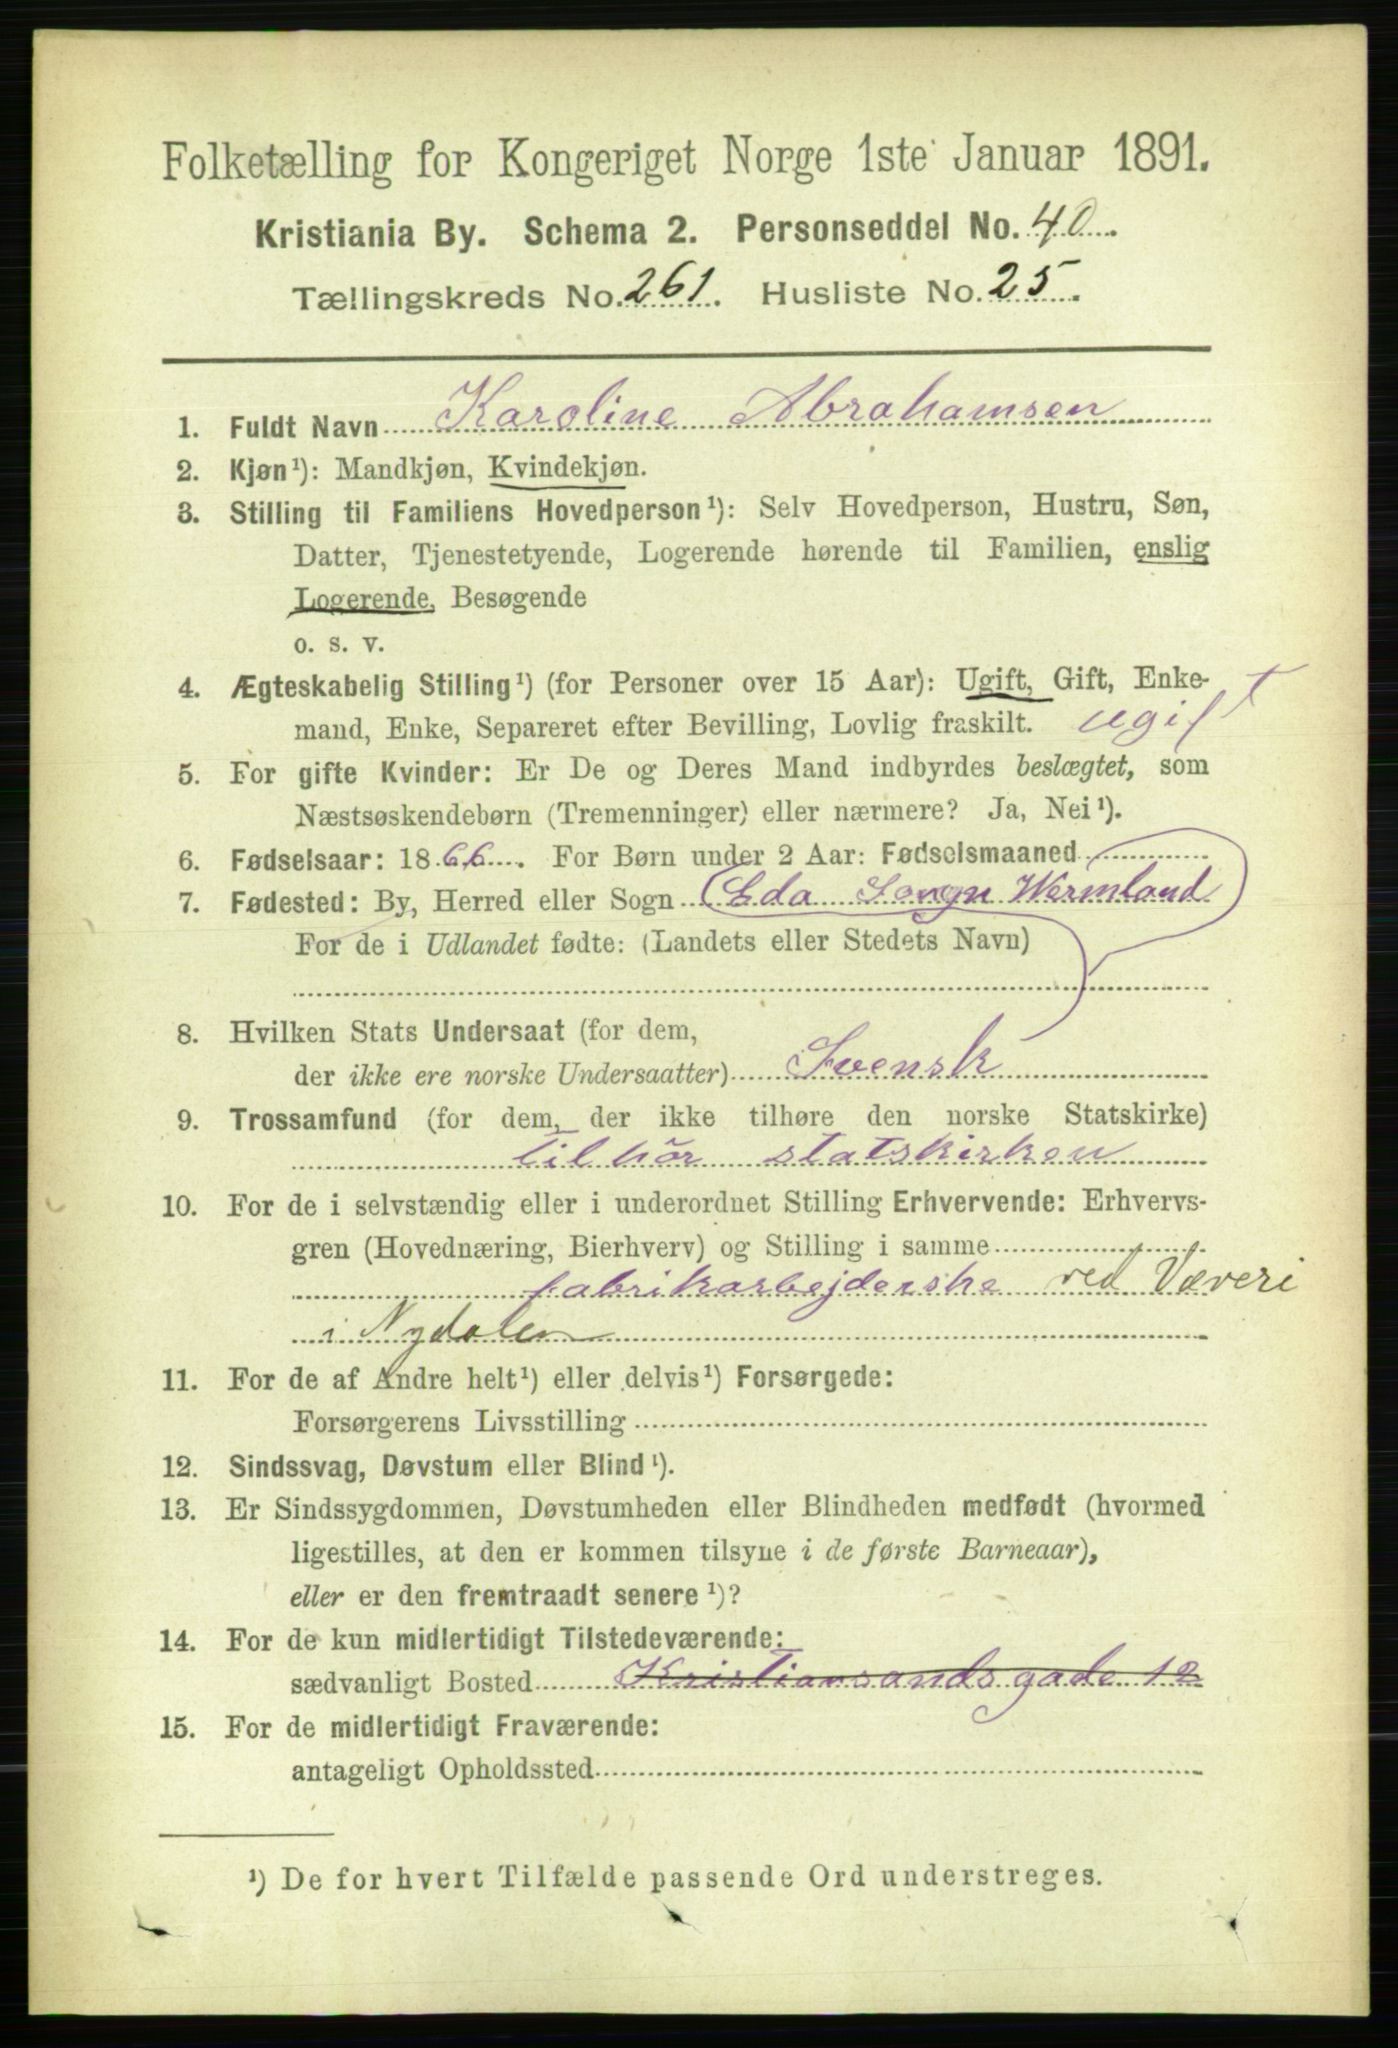 Folketælling for Kongeriget Norge 1ste Januar 1891.
Kristiania By. Schema 2. Personseddel No. 40.
Tællingskreds No. 261. Husliste No. 25.
1. Fuldt Navn Karoline Abrahamsen
2. Kjøn¹): Mandkjøn, Kvindekjøn.
3. Stilling til Familiens Hovedperson¹): Selv Hovedperson, Hustru, Søn,
Datter, Tjenestetyende, Logerende hørende til Familien, enslig
Logerende, Besøgende
o. s. v.
4. Ægteskabelig Stilling¹) (for Personer over 15 Aar): Ugift, Gift, Enke-
mand, Enke, Separeret efter Bevilling, Lovlig fraskilt. ugift
5. For gifte Kvinder: Er De og Deres Mand indbyrdes beslægtet, som
Næstsøskendebørn (Tremenninger) eller nærmere? Ja, Nei¹).
6. Fødselsaar: 1866. For Børn under 2 Aar: Fødselsmaaned
7. Fødested: By, Herred eller Sogn Eda Songn Wermland
For de i Udlandet fødte: (Landets eller Stedets Navn)
8. Hvilken Stats Undersaat (for dem,
der ikke ere norske Undersaatter) Svensk
9. Trossamfund (for dem, der ikke tilhøre den norske Statskirke)
tilhör statskirken
10. For de i selvstændig eller i underordnet Stilling Erhvervende: Erhvervs-
gren (Hovednæring, Bierhverv) og Stilling i samme
fabrikarbejderske ved Væveri
i Nydalen
11. For de af Andre helt¹) eller delvis¹) Forsørgede:
Forsørgerens Livsstilling
12. Sindssvag, Døvstum eller Blind¹).
13. Er Sindssygdommen, Døvstumheden eller Blindheden medfødt (hvormed
ligestilles, at den er kommen tilsyne i de første Barneaar),
eller er den fremtraadt senere¹)?
14. For de kun midlertidigt Tilstedeværende:
sædvanligt Bosted Kristiansands gade 12
15. For de midlertidigt Fraværende:
antageligt Opholdssted
¹) De for hvert Tilfælde passende Ord understreges.